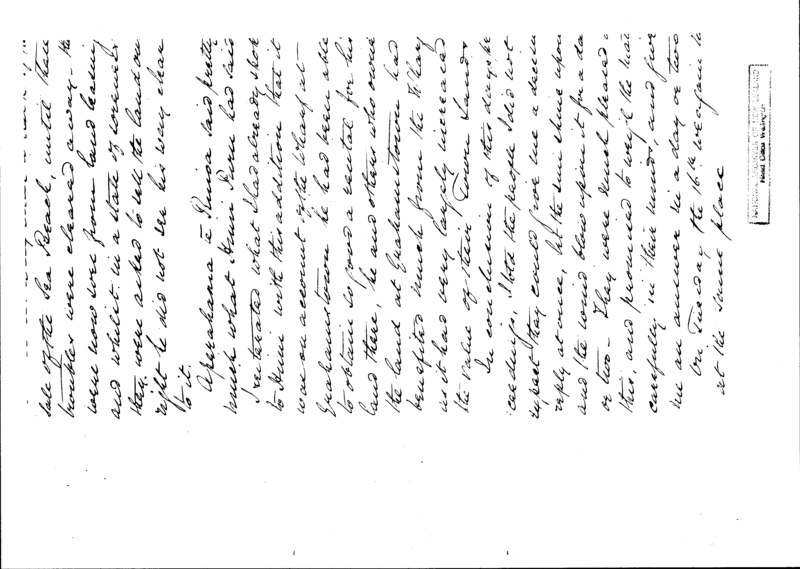 sale of the Sea Beach, until those
troubles were cleared away - the
were now sore from land leaving
and whilst in a state of soreness
they were asked to sell the land on
right he did not see his way clear
to it.
Aperahama said pretty
much what Hemi had said
I reiterated what I had already shown
to him with this addition that it
was on account of the Wharf at
Grahamstown he had been able
to obtain so good a rental for his
land there, he and others who owned
the land at Grahamstown had
benefited much from the Wharf
as it had very largely increased
the value of their Town Lands
In conclusion of this days pro
ceedings, I told the people I did not
expect they could give me a decisive
reply at once, let the sun shine upon
and the wind blow upon it for a day
or two - They were much pleased a
this, and promised to weigh the matter
carefully in their minds, and give
me an answer in a day or two
On Tuesday the 16th we again
at the same place
NATIONAL ARCHIVES OF NEW ZEALAND
Head Office Wellington